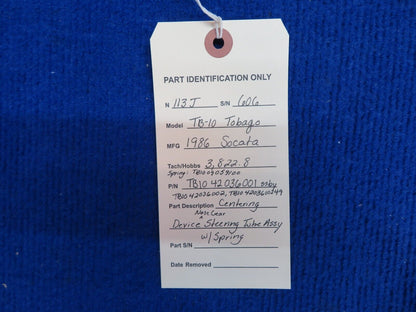 PART IDENTIFICATION ONLY
N 113J S/N 606
Model TB-10 Tobago
MFG 1986 Socata
Tach/Hobbs 3,822.8
Spring: TB10 09059100
P/N TB10 42036001 ssby
TB10 42036002, TB10 4203600249
Part Description Centering
Nose Gear
Device Steering Tube Assy
w/ Spring
Part S/N
Date Removed